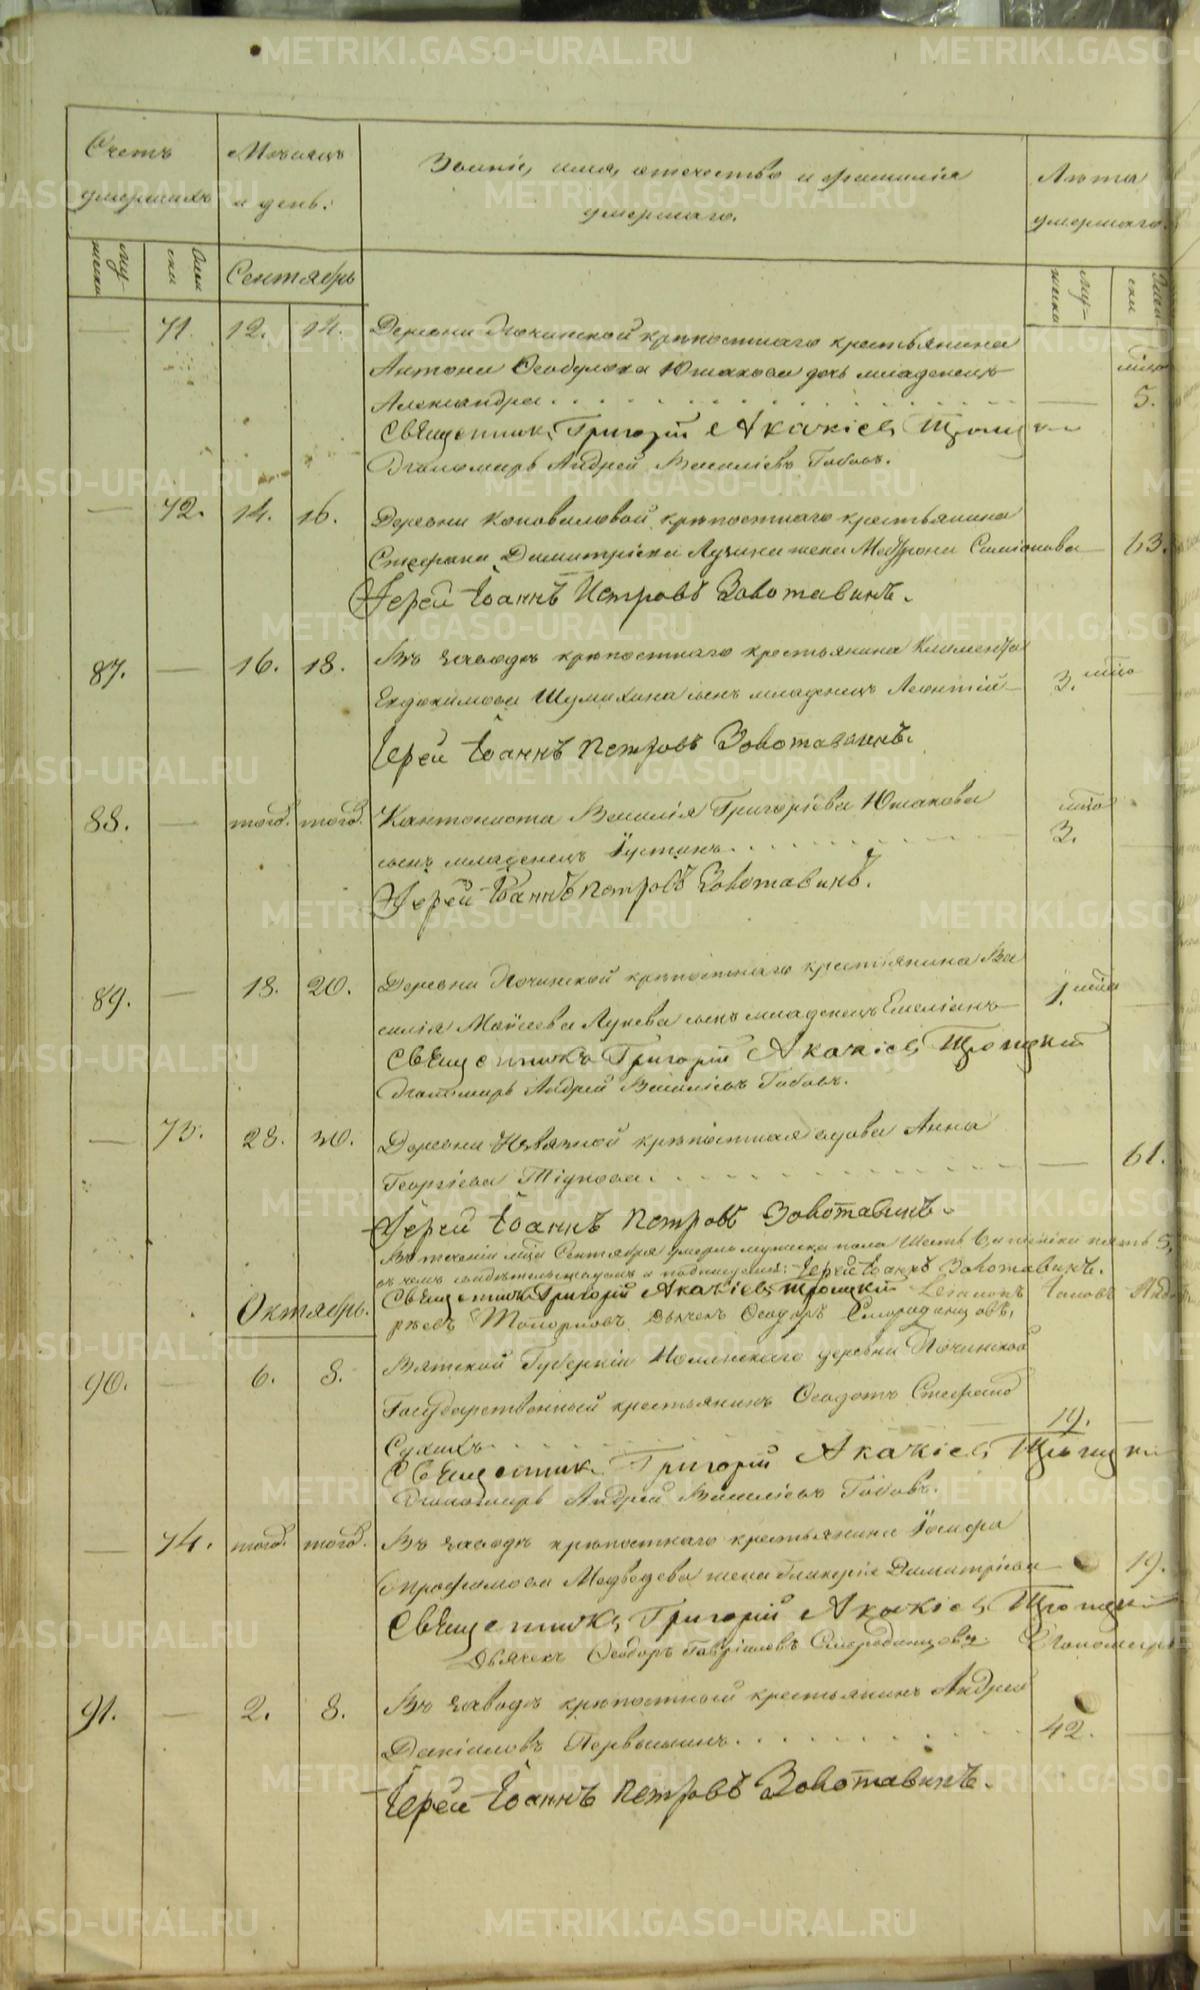 METRIKI.GASO-URAL.RU
Счетъ умершихъ
Мѣсяцъ и день.
Званіе, имя, отечество и фамилія
умершаго.
Лѣта умершаго.
муж-
жен-
ски
Сентябрь
— 71. 12. 14. Деревни Починской крѣпостнаго крестьянина
Антона Ѳеодулова Юшакова дочь младенецъ
Александра — мѣся 5.
Священникъ Григорій Акакіевъ Троицкій
Пономарь Андрей Василіевъ Бобовъ.
— 72. 14. 16. Деревни Коноваловой крѣпостнаго крестьянина
Стефана Димитріева Лузина жена Матрона Симіонова — 63.
Іерей Іоаннъ Петровъ Золотавинъ.
87. — 16. 18. Въ заводѣ крѣпостнаго крестьянина Климента
Евдокимова Шумихина сынъ младенецъ Леонтій — 3. мѣся
Іерей Іоаннъ Петровъ Золотавинъ.
88. — тогоѣ. тогоѣ. Кантониста Василія Григоріева Юшакова
сынъ младенецъ Іустинъ. мѣся 3.
Іерей Іоаннъ Петровъ Золотавинъ.
89. — 18. 20. Деревни Починской крѣпостнаго крестьянина Ва
силія Моѵсеева Лунева сынъ младенецъ Емеліанъ — 1. мѣся
Священникъ Григорій Акакіевъ Троицкій
Пономарь Андрей Василіевъ Бобовъ.
— 73. 28. 30. Деревни крѣпостная вдова Анна
Георгіева Тіунова. — 61.
Іерей Іоаннъ Петровъ Золотавинъ.
Въ теченіи мца Сентября умерло мужеска пола шесть 6, и женска пять 5,
въ чемъ свидѣтельствуемъ и подписуемъ: Іерей Іоаннъ Золотавинъ.
Священникъ Григорій Акакіевъ Троицкій
Дьячекъ Ѳеодоръ Смородинцовъ,
Октябрь.
90. — 6. 8. Вятской Губерніи Нолинскаго деревни Починской
Государственный крестьянинъ Ѳеодотъ Стефано
Сухихъ 19. —
Священникъ Григорій Акакіевъ Троицкій
Пономарь Андрей Василіевъ Бобовъ.
— 74. тогоѣ. тогоѣ. Въ заводѣ крѣпостнаго крестьянина Іосифа
Медведева жена Гликерія Димитріева — 19.
Священникъ Григорій Акакіевъ Троицкій
Дьячекъ Ѳеодоръ Гавріиловъ Смородинцовъ. Пономарь
91. — 2. 8. Въ заводѣ крѣпостный крестьянинъ Андрей
Даніиловъ Первышинъ. 42. —
Іерей Іоаннъ Петровъ Золотавинъ.